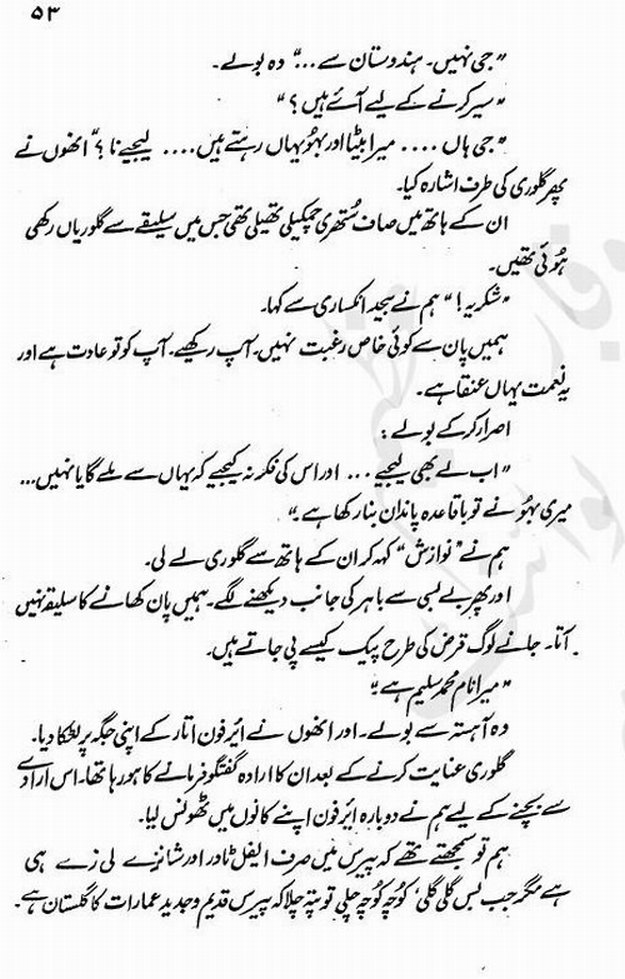 ۵۳
"جی نہیں۔ ہندوستان سے..." وہ بولے۔
"سیر کرنے کے لیے آئے ہیں؟"
"جی ہاں .... میرا بیٹا اور بہُو یہاں رہتے ہیں.... لیجیے نا؟" انھوں نے
پھر گلوری کی طرف اشارہ کیا۔
ان کے ہاتھ میں صاف سُتھری چمکیلی تھیلی تھی جس میں سلیقے سے گلوریاں رکھی
ہوُئی تھیں۔
"شکریہ!" ہم نے بیحد انکساری سے کہا۔
ہمیں پان سے کوئی خاص رغبت نہیں۔ آپ رکھیے۔ آپ کو تو عادت ہے اور
یہ نعمت یہاں عنقا ہے۔
اصرار کر کے بولے:
"اب لے بھی لیجیے ... اور اس کی فکر نہ کیجیے کہ یہاں سے ملے گا یا نہیں...
میری بہُو نے تو باقاعدہ پاندان بنا رکھا ہے۔"
ہم نے "نوازش" کہہ کر ان کے ہاتھ سے گلوری لے لی۔
اور پھر بے بسی سے باہر کی جانب دیکھنے لگے۔ ہمیں پان کھانے کا سلیقہ نہیں
آتا۔ جانے لوگ قرض کی طرح پیک کیسے پی جاتے ہیں۔
"میرا نام محمد سلیم ہے۔"
وہ آہستہ سے بولے۔ اور انھوں نے ائیر فون اتار کے اپنی جگہ پر لٹکا دیا۔
گلوری عنایت کرنے کے بعد ان کا ارادہ گفتگو فرمانے کا ہو رہا تھا۔ اس ارادے
سے بچنے کے لیے ہم نے دوبارہ ائیر فون اپنے کانوں میں ٹھونس لیا۔
ہم تو سمجھتے تھے کہ پیرس میں صرف ایفل ٹاور اور شانزے لی زے ہی
ہے مگر جب بس گلی گلی، کوُچہ کوُچہ چلی تو پتہ چلا کہ پیرس قدیم و جدید عمارات کا گلستان ہے۔